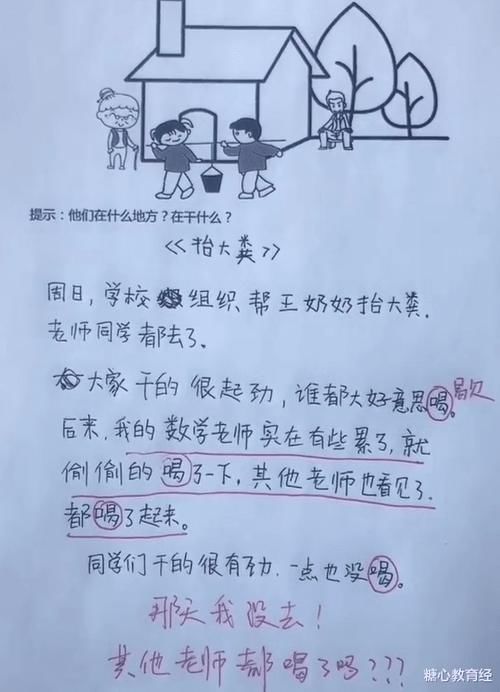 提示：他们在什么地方？在干什么？
《抬大粪》
周日，学校组织帮王奶奶抬大粪.
老师同学都去了.
大家干的很起劲，谁都大好意思喝。歇
后来，我的数学老师实在有些累了，就
偷偷的喝了一下，其他老师也看见了.
都喝了起来。
同学们干的很有劲.一点也没喝。
那天我没去！
其他老师都喝了吗？？？
糖心教育经